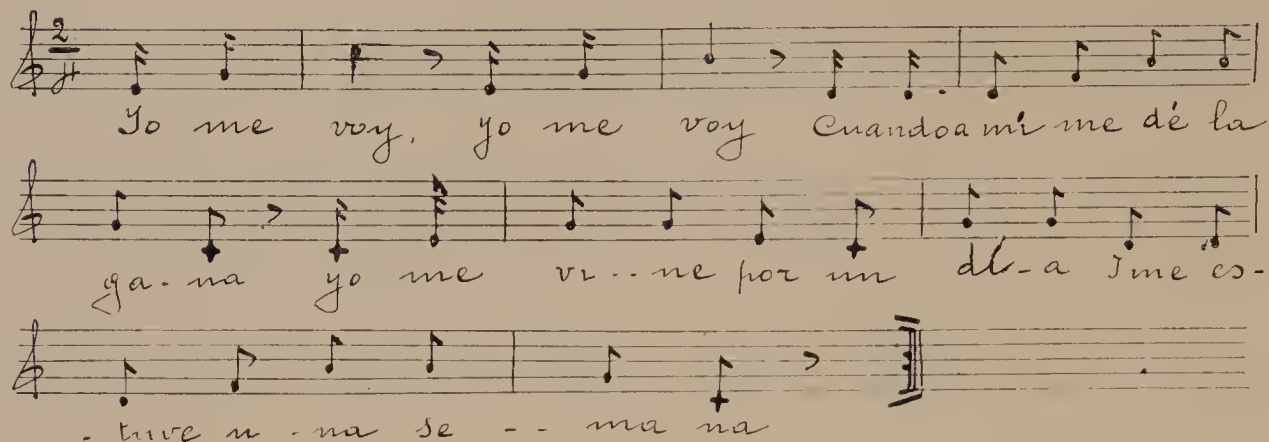 2
4
Yo me voy, yo me voy Cuandoa mí me dé la
ga-na yo me vi--ne por un dí-a I me es-
-tuve u-na se -- ma na